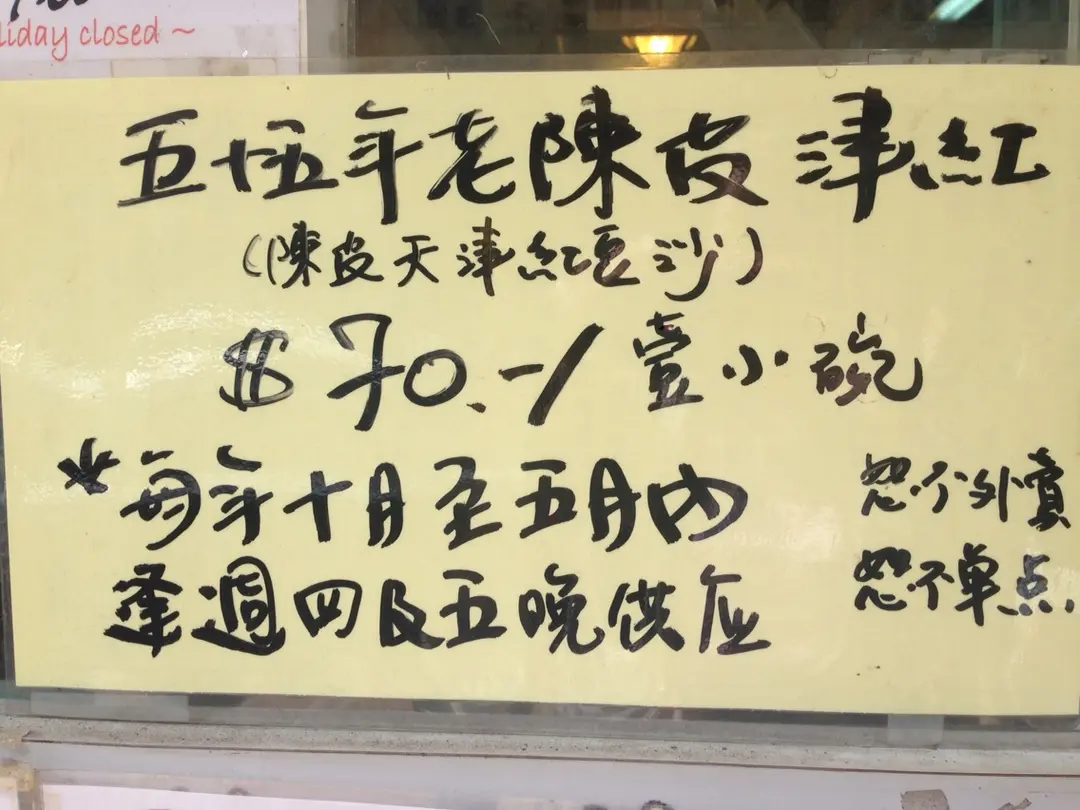 liday closed ~
五十五年老陳皮津紅
(陳皮天津紅豆沙)
$70.-/壹小碗
*每年十月至五月內
逢週四及五晚供应
恕不外賣
恕不單点